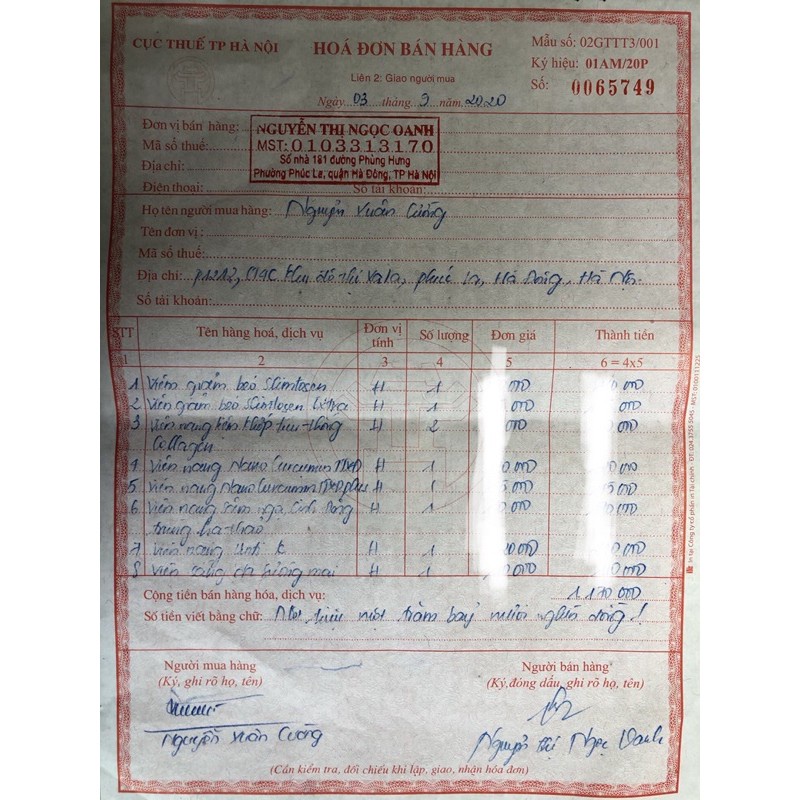 CỤC THUẾ TP HÀ NỘI
HOÁ ĐƠN BÁN HÀNG
Mẫu số: 02GTTT3/001
Ký hiệu: 01AM/20P
Liên 2: Giao người mua
Số: 0065749
Ngày 03 tháng 9 năm 2020
Đơn vị bán hàng:
Mã số thuế:
Địa chỉ:
Điện thoại: Số tài khoản:
NGUYỄN THỊ NGỌC OANH
MST: 0103313170
Số nhà 181 đường Phùng Hưng
Phường Phúc La, quận Hà Đông, TP Hà Nội
Họ tên người mua hàng: Nguyễn Xuân Cường
Tên đơn vị:
Mã số thuế:
Địa chỉ: P1212, khu đô thị Xala, phúc la, Hà Đông, Hà Nội
Số tài khoản:
STT Tên hàng hoá, dịch vụ Đơn vị tính Số lượng Đơn giá Thành tiền
1 2 3 4 5 6 = 4x5
1 Viên giảm béo Slimtosen H 1 000 000
2 Viên giảm béo Slimtosen Extra H 1 000 000
3 Viên nang H 2 000 000
Collagen
4 Viên nang Nano Curcumin H 1 000 000
5 Viên nang Nano Curcumin plus H 1 5 000 5 000
6 Viên nang H 1 000 000
trùng hạ thảo
7 Viên nang H 1 000 000
8 Viên H 1 000 000
Cộng tiền bán hàng hóa, dịch vụ: 1.170 000
Số tiền viết bằng chữ: Một triệu một trăm bảy mươi nghìn đồng!
Người mua hàng
(Ký, ghi rõ họ, tên)
Nguyễn Xuân Cường
Người bán hàng
(Ký, đóng dấu, ghi rõ họ, tên)
Nguyễn Thị Ngọc Oanh
(Cần kiểm tra, đối chiếu khi lập, giao, nhận hóa đơn)